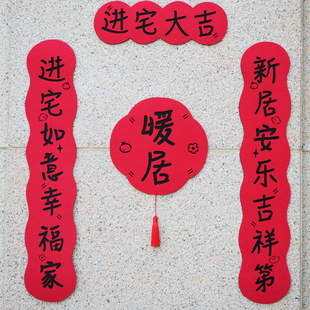 进宅大吉
新居安乐吉祥第
暖居
进宅如意幸福家